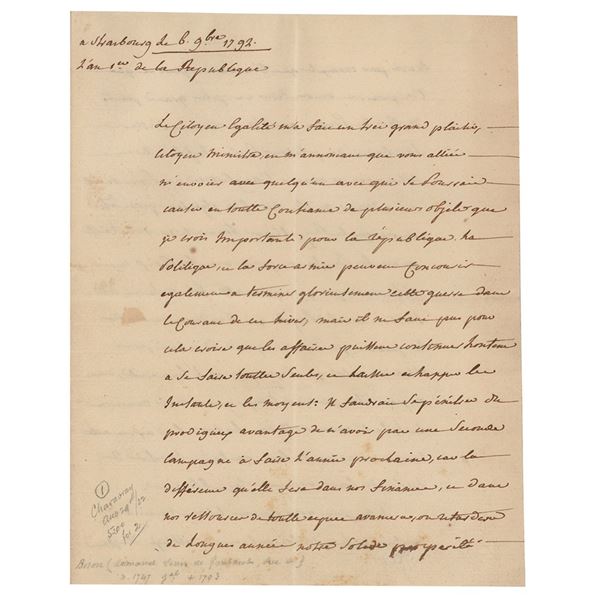 a Strasbourg le 6. 9bre 1792.
L'an 1er de la République
Le Citoyen Egalité m'a fait un trei grand plaisir,
Citoyen Ministre, en m'annonceant que vous alliée
m'envoier avec quelqu'un avec qui je pourrai
causer en toutte Confiance de plusieurs objets que
je crois Importants pour la république. La
Politique, et la force armée peuvent Concourir
egalement a terminer glorieusement cette guerre dans
le Courant de cet hiver; mais il ne faut pas pour
cela croire que les affaires puissent continuer
a se faire touttes Seules, et laisser echapper les
Instants, et les moyens: Il faudrait se pénétrer du
prodigieux avantage de n'avoir pas une Seconde
Campagne à faire L'année prochaine, car la
différence qu'elle fera dans nos finances, et dans
nos ressources de toutte espece avancera, ou retardera
de Longues années notre Solide prospérité
1
Charavay
Biron
+ 1793